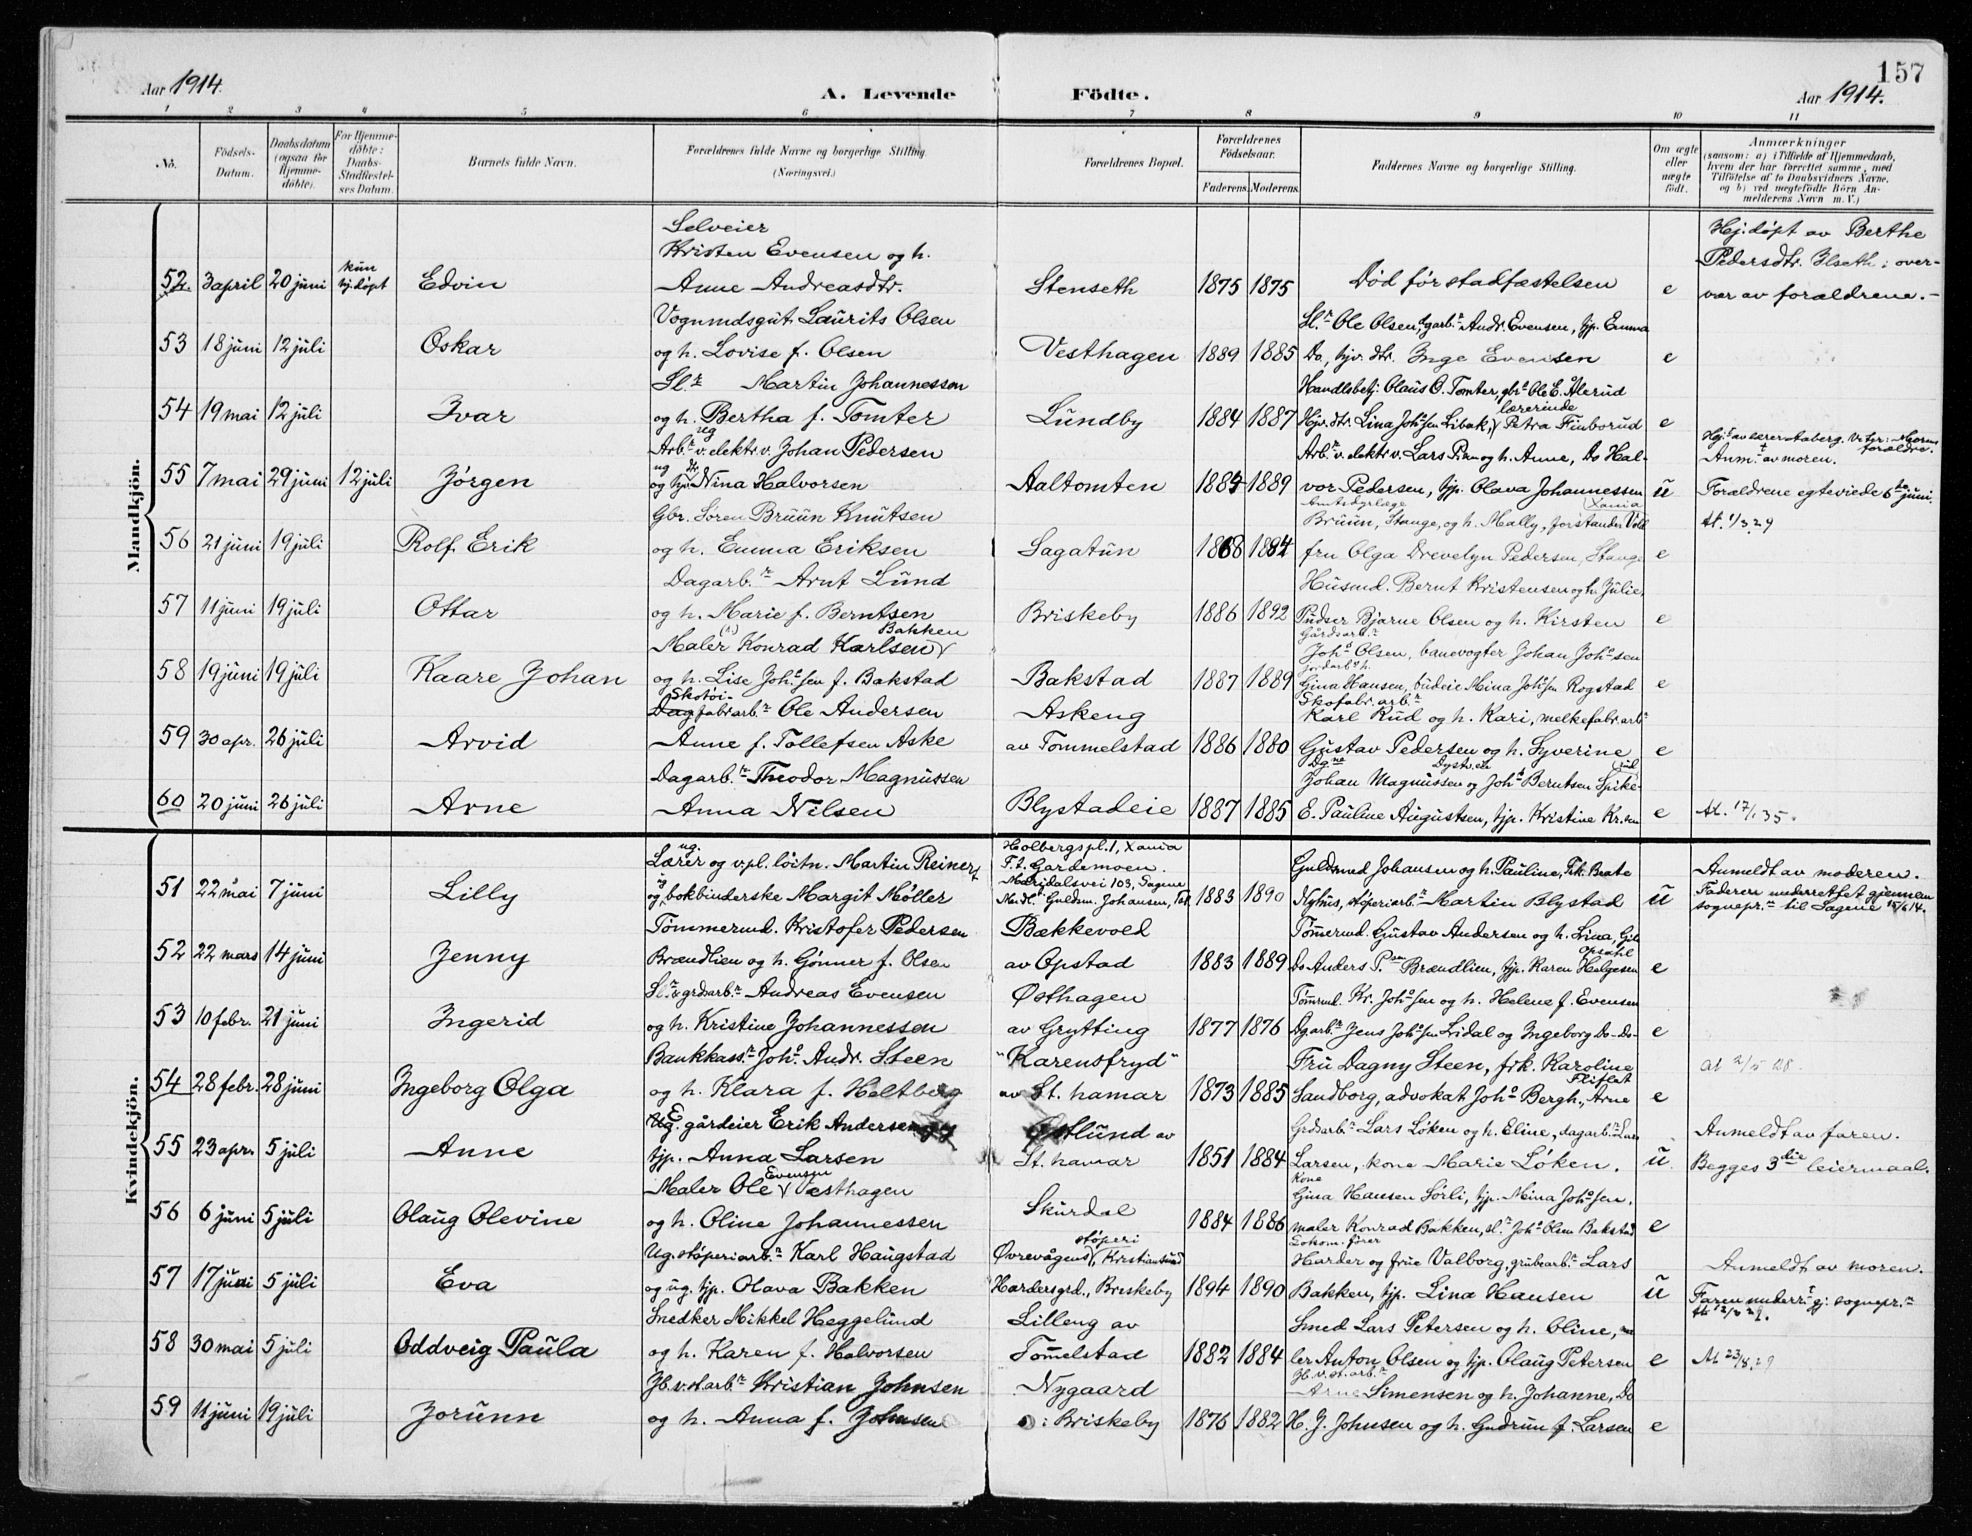 157
Aar 1914.
A. Levende Födte.
Aar 1914.
1 2 3 4 5 6 7 8 9 10 11
No.
Födsels-Datum.
Daabsdatum (ogsaa for Hjemme-döbte).
For Hjemme-döbte: Daabs-Stadfæstel-ses Datum.
Barnets fulde Navn.
Forældrenes fulde Navne og borgerlige Stilling. (Næringsvei.)
Forældrenes Bopæl.
Forældrenes Födselsaar.
Faderens. Moderens.
Faddernes Navne og borgerlige Stilling.
Om ægte eller uægte födt.
Anmærkninger
(saasom: a) i Tilfælde af Hjemmedaab,
hvem der har forrettet samme, med
Tilföielse af to Daabsvidners Navne,
og b) ved uegtefödte Börn An-
melderens Navn m. V.)
Mandkjön.
Selveier
Kristen Evensen og h.
Hj.døpt av Berthe
Pedersdtr. Ilseth; over-
52. 3 april 20 juni kun hj.døpt Edvin Anne Andreasdtr. Stenseth 1875 1875 Død før stadfæstelsen e var av forældrene. -
Vognmdsgut Laurits Olsen
Sl.r Ole Olsen, garb.r Andr. Evensen, tjp. Emma
53 18 juni 12 juli Oskar og h. Lovise f. Olsen Vesthagen 1889 1885 Do, hjv. dtr. Inge Evensen e
Sl.r Martin Johannessen
Handlsbetj. Olaus O. Tomter, gbr Ole E. Alerud
lærerinde
54 19 mai 12 juli Ivar og h. Bertha f. Tomter Lundby 1884 1887 Hjv. dtr. Lina Joh.sen Libak, Petra Finborud e
Arb.r v. elektr.v. Johan Pedersen
Arb.r v. elektr v. Lars P.sen og h. Anne, Do Hal-
Anm.t av moren.
55 7 mai 29 juni 12 juli Jørgen og Nina Halvorsen Aaltomten 1884 1889 vor Pedersen, tjp. Olava Johannessen ü Forældrene egteviede 6te juni.
Gbr. Søren Bruun Knutsen
Bruun, Stange, og h. Mally, forstander
At. 1/3 29
56 21 juni 19 juli Rolf Erik og h. Emma Eriksen Sagatun 1868 1884 fru Olga Drevelyn Pedersen, Stange e
Dagarb.r Arnt Lund
Husmd. Bernt Kristensen og h. Julie,
57 11 juni 19 juli Ottar og h. Marie f. Berntsen Briskeby 1886 1892 Pudser Bjarne Olsen og h. Kirsten e
Bakken
Maler Konrad Karlsen
Gårdsarb.r
Joh.s Olsen, banevogter Johan Joh.sen
58 19 juni 19 juli Kaare Johan og h. Lise Joh.sen f. Bakstad Bakstad 1887 1889 Gina Hansen, budeie Mina Joh.sen Rogstad e
Skotøi-
Dagfabrarb.r Ole Andersen
Askeng
Skofabr.arb.r
Karl Rud og h. Kari, melkefabr.arb.r
59 30 apr. 26 juli Arvid Anne f. Tollefsen Aske av Tommelstad 1886 1880 Gustav Pedersen og h. Syverine e
Dagarb.r Theodor Magnussen
Johan Magnussen og Joh.s Berntsen Spike-
60 20 juni 26 juli Arne Anna Nilsen Blystadeie 1887 1885 E. Pauline Augustsen, tjp. Kristine Kr.sen e At. 17/1 35.
Kvindekjön.
ug.
Lærer og v.pl. løitn. Martin Reinert
Holbergspl. 1, Xania
F.t. Gardemoen.
Guldsmed Johansen og h. Pauline, Frk. Beate
Anmeldt av moderen.
Maridalsvei 103, Sagene
Faderen underrettet gjennem
51 22 mai 7 juni Lilly og bokbinderske Margit Møller Guldsm. Johansen, 1883 1890 Nyhus, støperiarb.r Martin Blystad ü sognepr.n til Sagene 15/6 14.
Tømmermd. Kristofer Pedersen
Bækkevold
Tømrmd. Gustav Andersen og h. Lina,
52 22 mars 14 juni Jenny Brændlien og h. Gønner f. Olsen av Opstad 1883 1889 Do Anders P.sen Brændlien, tjp. Karen Helgesen e
Sl.r & grdsarb.r Andreas Evensen
Østhagen
Tømrmd. Kr. Joh.sen og h. Helene f. Evensen
53 10 febr. 21 juni Ingerid og h. Kristine Johannessen av Grytting 1877 1876 Dgarb.r Jens Joh.sen Lidal og Ingeborg Do-Do- e
Bankkass.r Joh.s Andr. Steen
"Karensfryd"
Fru Dagny Steen, frk. Karoline
Fliflet
at 2/5 28.
54 28 febr. 28 juni Ingeborg Olga og h. Klara f. Heltberg av St. hamar 1873 1885 Sandborg, advokat Joh.s Bergh., Arne e
Ug. gårdeier Erik Andersen
Østlund av
Grdsarb.r Lars Løken og h. Eline, dagarb.r Lars
Anmeldt av faren.
55 23 apr. 5 juli Anne tjp. Anna Larsen St. hamar 1851 1884 Larsen, kone Marie Løken. ü Begges 3die leiermaal.
Evensen
Maler Ole Østhagen
kone
Gina Hansen Sørli, tjp. Mina Joh.sen,
56 6 juni 5 juli Olaug Olevine og h. Oline Johannessen Skurdal 1884 1886 maler Konrad Bakken, sl.r Joh.s Olsen Bakstad e
støperi
Lokom.fører
Ug. støperiarb.r Karl Haugstad
Øvrevågens, Kristiansund
Harder og frue Valborg, grubearb.r Lars
Anmeldt av moren.
57 17 juni 5 juli Eva og ug. tjp. Olava Bakken Hardersgrd., Briskeby 1894 1890 Bakken, tjp. Lina Hansen ü Faren underr.t gj. sognepr.n
Snedker Mikkel Heggelund
Lilleng av
Smed Lars Petersen og h. Oline, ma-
58 30 mai 5 juli Oddveig Paula og h. Karen f. Halvorsen Tommelstad 1882 1884 ler Anton Olsen og tjp. Olaug Petersen e At 23/8.29
Jb.v.st.arb.r Kristian Johnsen
Nygaard
Jb.v.st.arb.r
Arne Simensen og h. Johanne, Do
59 11 juni 19 juli Jorunn og h. Anna f. Johnsen : Briskeby 1876 1882 H. J. Johnsen og h. Gudrun f. Larsen e